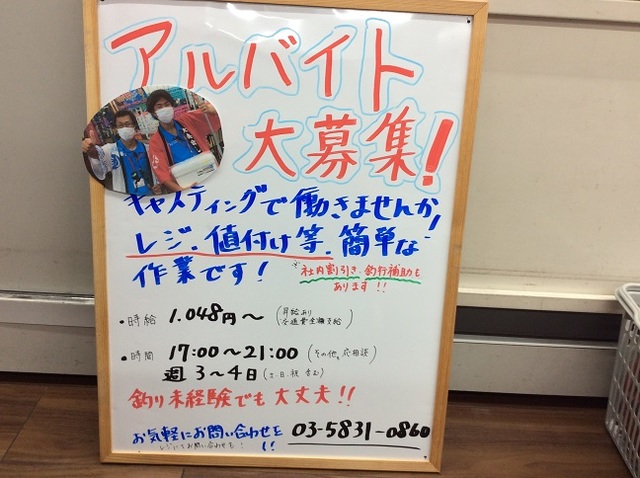 アルバイト
大募集!
キャスティングで働きませんか!
レジ、値付け等、簡単な
作業です!
※社内割引き、釣行補助も
あります!!
・時給 1.048円〜 (昇給あり
交通費全額支給)
・時間 17:00〜21:00 (その他、応相談)
週3〜4日(土、日、祝含む)
釣り未経験でも大丈夫!!
お気軽にお問い合わせを!!
03-5831-0860